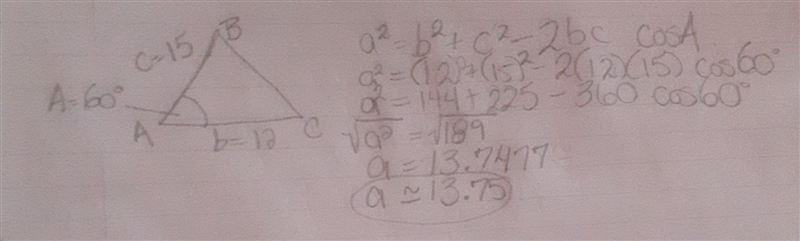 B
c=15
A=60°
A
b=12
C
a²=b²+c²-2bc cosA
a²=(12)²+(15)²-2(12)(15) cos60°
a²=144+225-360 cos60°
√a²=√189
a=13.7477
a≃13.75